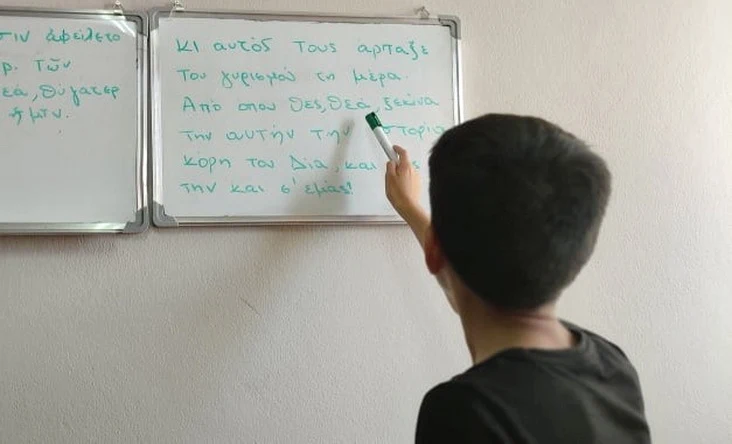 ἀφείλετο
τῶν
θύγατερ
ἡμῖν.
κι αυτός τους άρπαξε
του γυρισμού τη μέρα.
Από οπου θες, θεά, ξεκίνα
την αυτήν την στορία
κόρη του Δία, και
την και σ' εμάς!